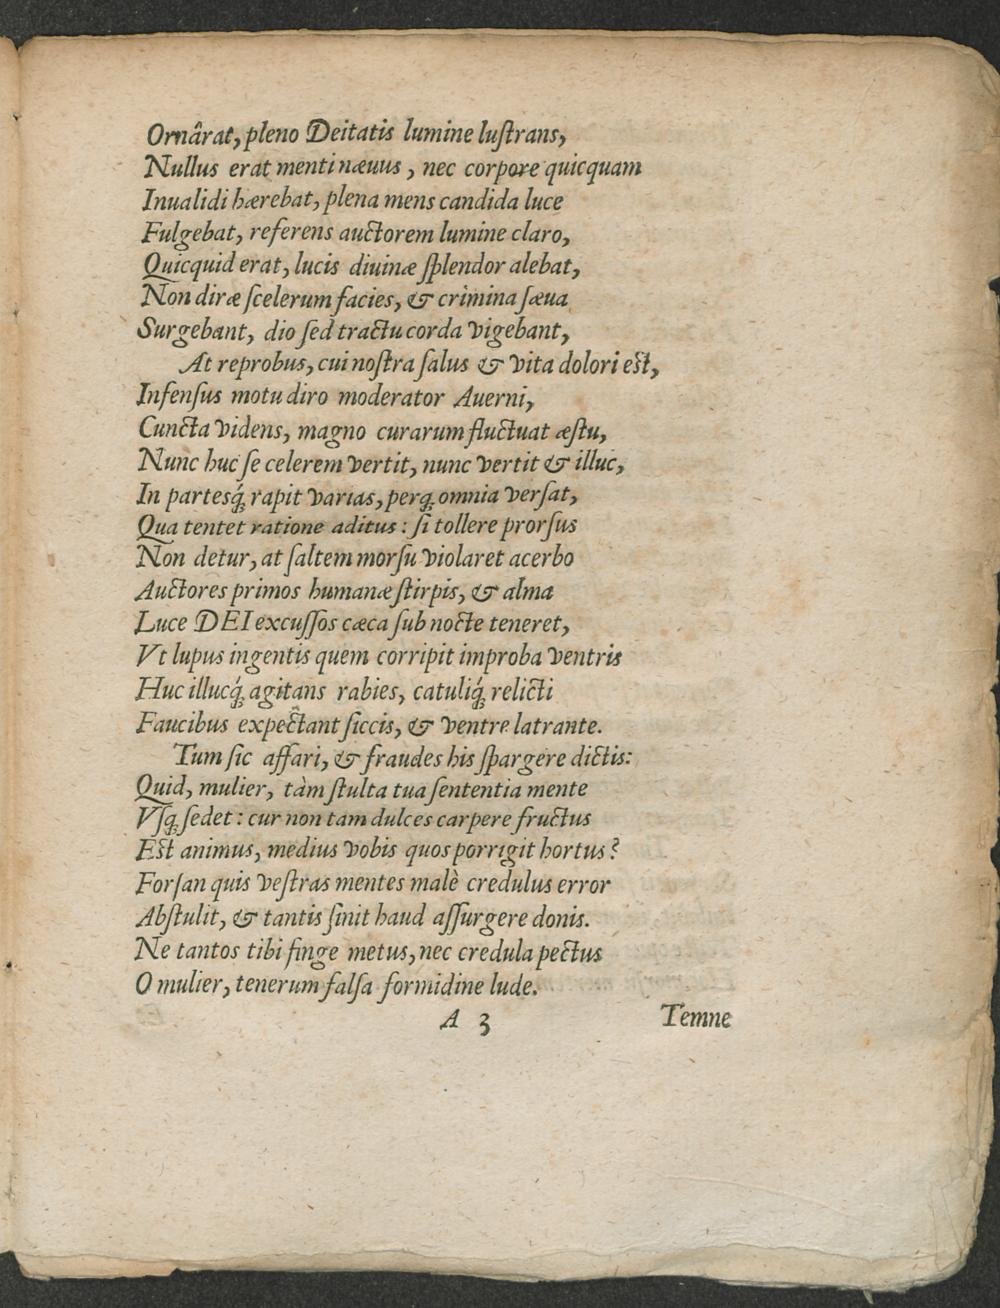 Ornârat, pleno Deitatis lumine luſtrans,
Nullus erat menti næuus, nec corpore quicquam
Inualidi hærebat, plena mens candida luce
Fulgebat, referens auctorem lumine claro,
Quicquid erat, lucis diuinæ ſplendor alebat,
Non diræ ſcelerum facies, & crimina ſæua
Surgebant, dio ſed tractu corda vigebant,
At reprobus, cui noſtra ſalus & vita dolori est,
Infenſus motu diro moderator Auerni,
Cuncta videns, magno curarum fluctuat æſtu,
Nunc huc ſe celerem vertit, nunc vertit & illuc,
In partesq́; rapit varias, perq; omnia verſat,
Qua tentet ratione aditus: ſi tollere prorſus
Non detur, at ſaltem morſu violaret acerbo
Auctores primos humanæ ſtirpis, & alma
Luce DEI excuſſos cæca ſub nocte teneret,
Vt lupus ingentis quem corripit improba ventris
Huc illucq́; agitans rabies, catuliq́; relicti
Faucibus expectant ſiccis, & ventre latrante.
Tum ſic affari, & fraudes his ſpargere dictis:
Quid, mulier, tàm ſtulta tua ſententia mente
Vſq; ſedet: cur non tam dulces carpere fructus
Est animus, medius vobis quos porrigit hortus?
Forſan quis veſtras mentes malè credulus error
Abſtulit, & tantis ſinit haud aſſurgere donis.
Ne tantos tibi finge metus, nec credula pectus
O mulier, tenerum falſa formidine lude.
A 3 Temne